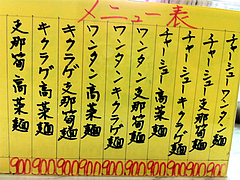 メニュー表
チャーシューワンタン麺
チャーシュー支那筍麺
チャーシューキクラゲ麺
チャーシュー高菜麺
ワンタン支那筍麺
ワンタンキクラゲ麺
ワンタン高菜麺
キクラゲ支那筍麺
キクラゲ高菜麺
支那筍高菜麺
900 900 900 900 900 900 900 900 900 900